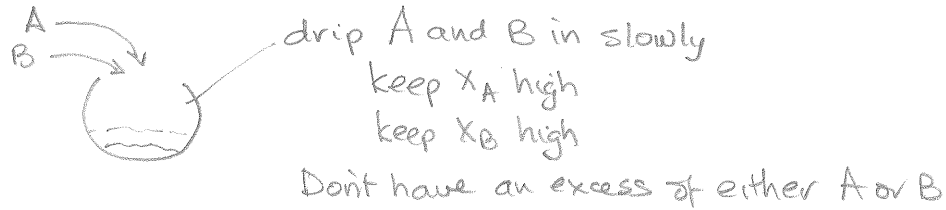 A
B
drip A and B in slowly
keep X_A high
keep X_B high
Don't have an excess of either A or B